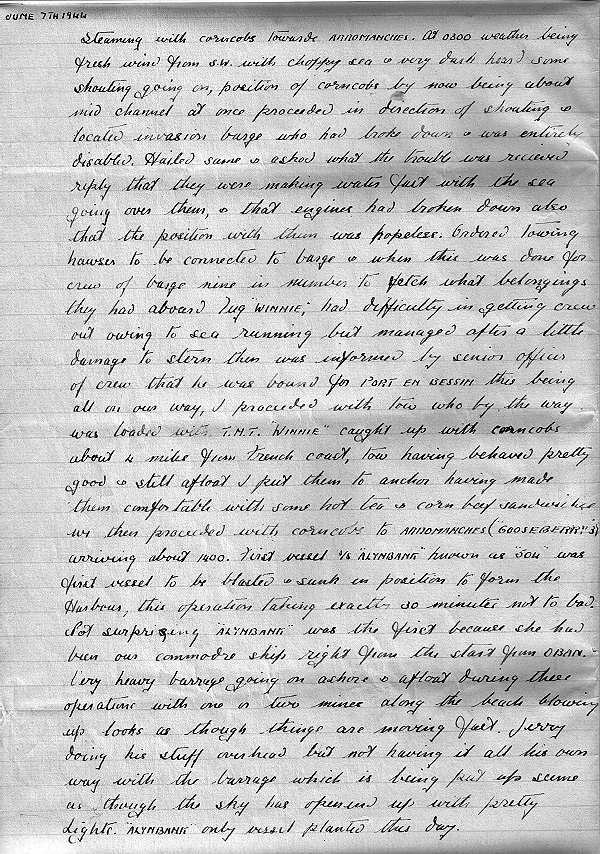 JUNE 7TH 1944
Steaming with corncobs towards ARROMANCHES. At 0300 weather being
fresh wind from S.W. with choppy sea & very dark heard some
shouting going on, position of corncobs by now being about
mid channel at once proceeded in direction of shouting &
located invasion barge who had broke down & was entirely
disabled. Hailed same & asked what the trouble was recieved
reply that they were making water fast with the sea
going over them, & that engines had broken down also
that the position with them was hopeless. Ordered towing
hawser to be connected to barge & when this was done for
crew of barge nine in number to fetch what belongings
they had aboard Tug "WINNIE", had difficulty in getting crew
out owing to sea running but managed after a little
damage to stern then was informed by senior officer
of crew that he was bound for PORT EN BESSIN this being
all on our way, I proceeded with tow who by the way
was loaded with T.N.T. "WINNIE" caught up with corncobs
about 4 miles from French coast, tow having behaved pretty
good & still afloat I put them to anchor having made
them comfortable with some hot tea & corn beef sandwiches
we then proceeded with corncobs to ARROMANCHES ("GOOSEBERRY" 3)
arriving about 1400. First vessel S/S "ALYNBANK" known as "304" was
first vessel to be blasted & sunk in position to form the
Harbour, this operation taking exactly 30 minutes not to bad.
Not surprising "ALYNBANK" was the first because she had
been our commodre ship right from the start from OBAN.
Very heavy barrage going on ashore & afloat during these
operations with one or two mines along the beach blowing
up looks as though things are moving fast. Jerry
doing his stuff overhead but not having it all his own
way with the barrage which is being put up seems
as though the sky has opened up with pretty
Lights. "ALYNBANK" only vessel planted this day.